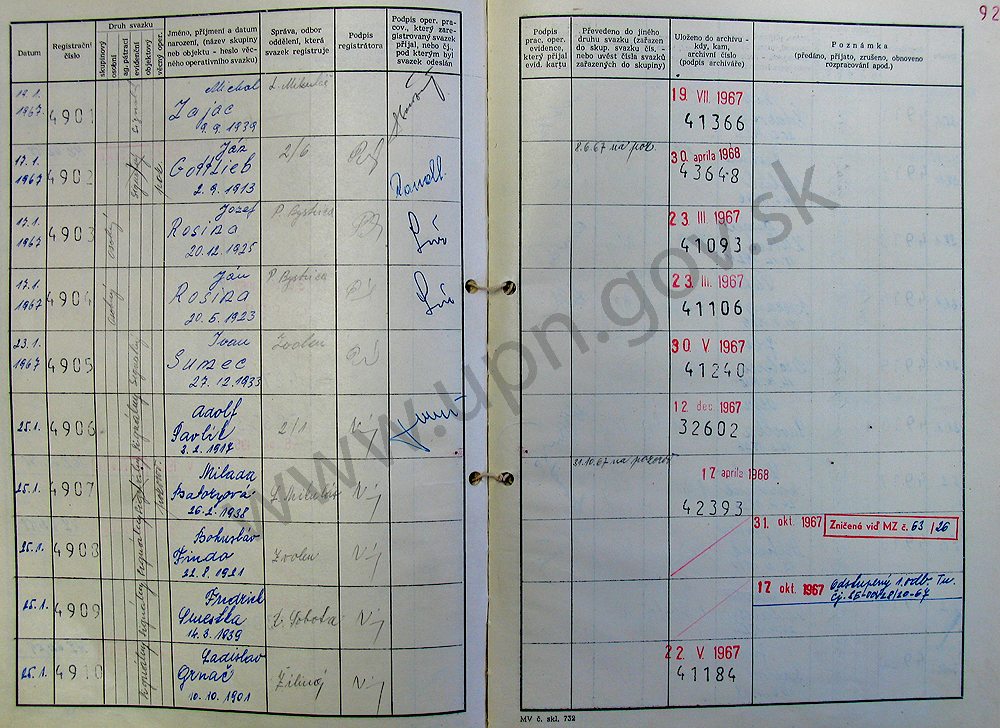 92
Datum
Registrační číslo
Druh svazku
skupinový
osobní
ag. pátrací
evidenční
objektový
věcný oper.
Jméno, příjmení a datum
narození, (název skupiny
neb objektu - heslo věc-
ného operativního svazku)
Správa, odbor
oddělení, která
svazek registruje
Podpis
registrátora
Podpis oper. pracov., který zaregistrovaný svazek
přijal, nebo čj.
pod kterým byl
svazek odeslán
Podpis
prac. oper.
evidence,
který přijal
evid. kartu
Převedeno do jiného
druhu svazku (zařazen
do skup. svazku čís. -
nebo uvést čísla svazků
zařazených do skupiny)
Uloženo do archívu -
kdy, kam,
archivní číslo
(podpis archiváře)
Poznámka
(předáno, přijato, zrušeno, obnoveno
rozpracování apod.)
1967 4901 Michal
Zajac
9.9.1939
19 VII. 1967
41366
17.1.
1967 4902 Ján
Gottlieb
2.9.1913
2/6
8.6.67 na poz.
30 apríla 1968
43648
17.1.
1967 4903 osobný Jozef
Rosina
20.12.1925
P. Bystrica
23 III 1967
41093
17.1.
1967 4904 osobný Ján
Rosina
20.6.1923
P Bystrica
23 III. 1967
41106
23.1.
1967 4905 Ivan
Sumec
27.12.1933
Zvolen
30 V. 1967
41240
25.1. 4906 signálny Adolf
Pavlík
2.2.1917
2/1
12 dec 1967
32602
25.1. 4907 signálny Milada
Batoryová
26.2.1938
L Mikuláš
31.10.67 na pozor.
17 apríla 1968
42393
25.1. 4908 signálny Bohuslav
Finda
22.8.1921
Zvolen
31. okt. 1967
Zničené viď MZ č. 63/26
25.1. 4909 signálny Fridrich
Smestka
14.3.1939
R. Sobota
17 okt 1967
Odstúpený 1. odb.
25.1. 4910 signálny Ladislav
Grnáč
10.10.1901
Žilina
22 V. 1967
41184
MV č. skl. 732
www.upn.gov.sk